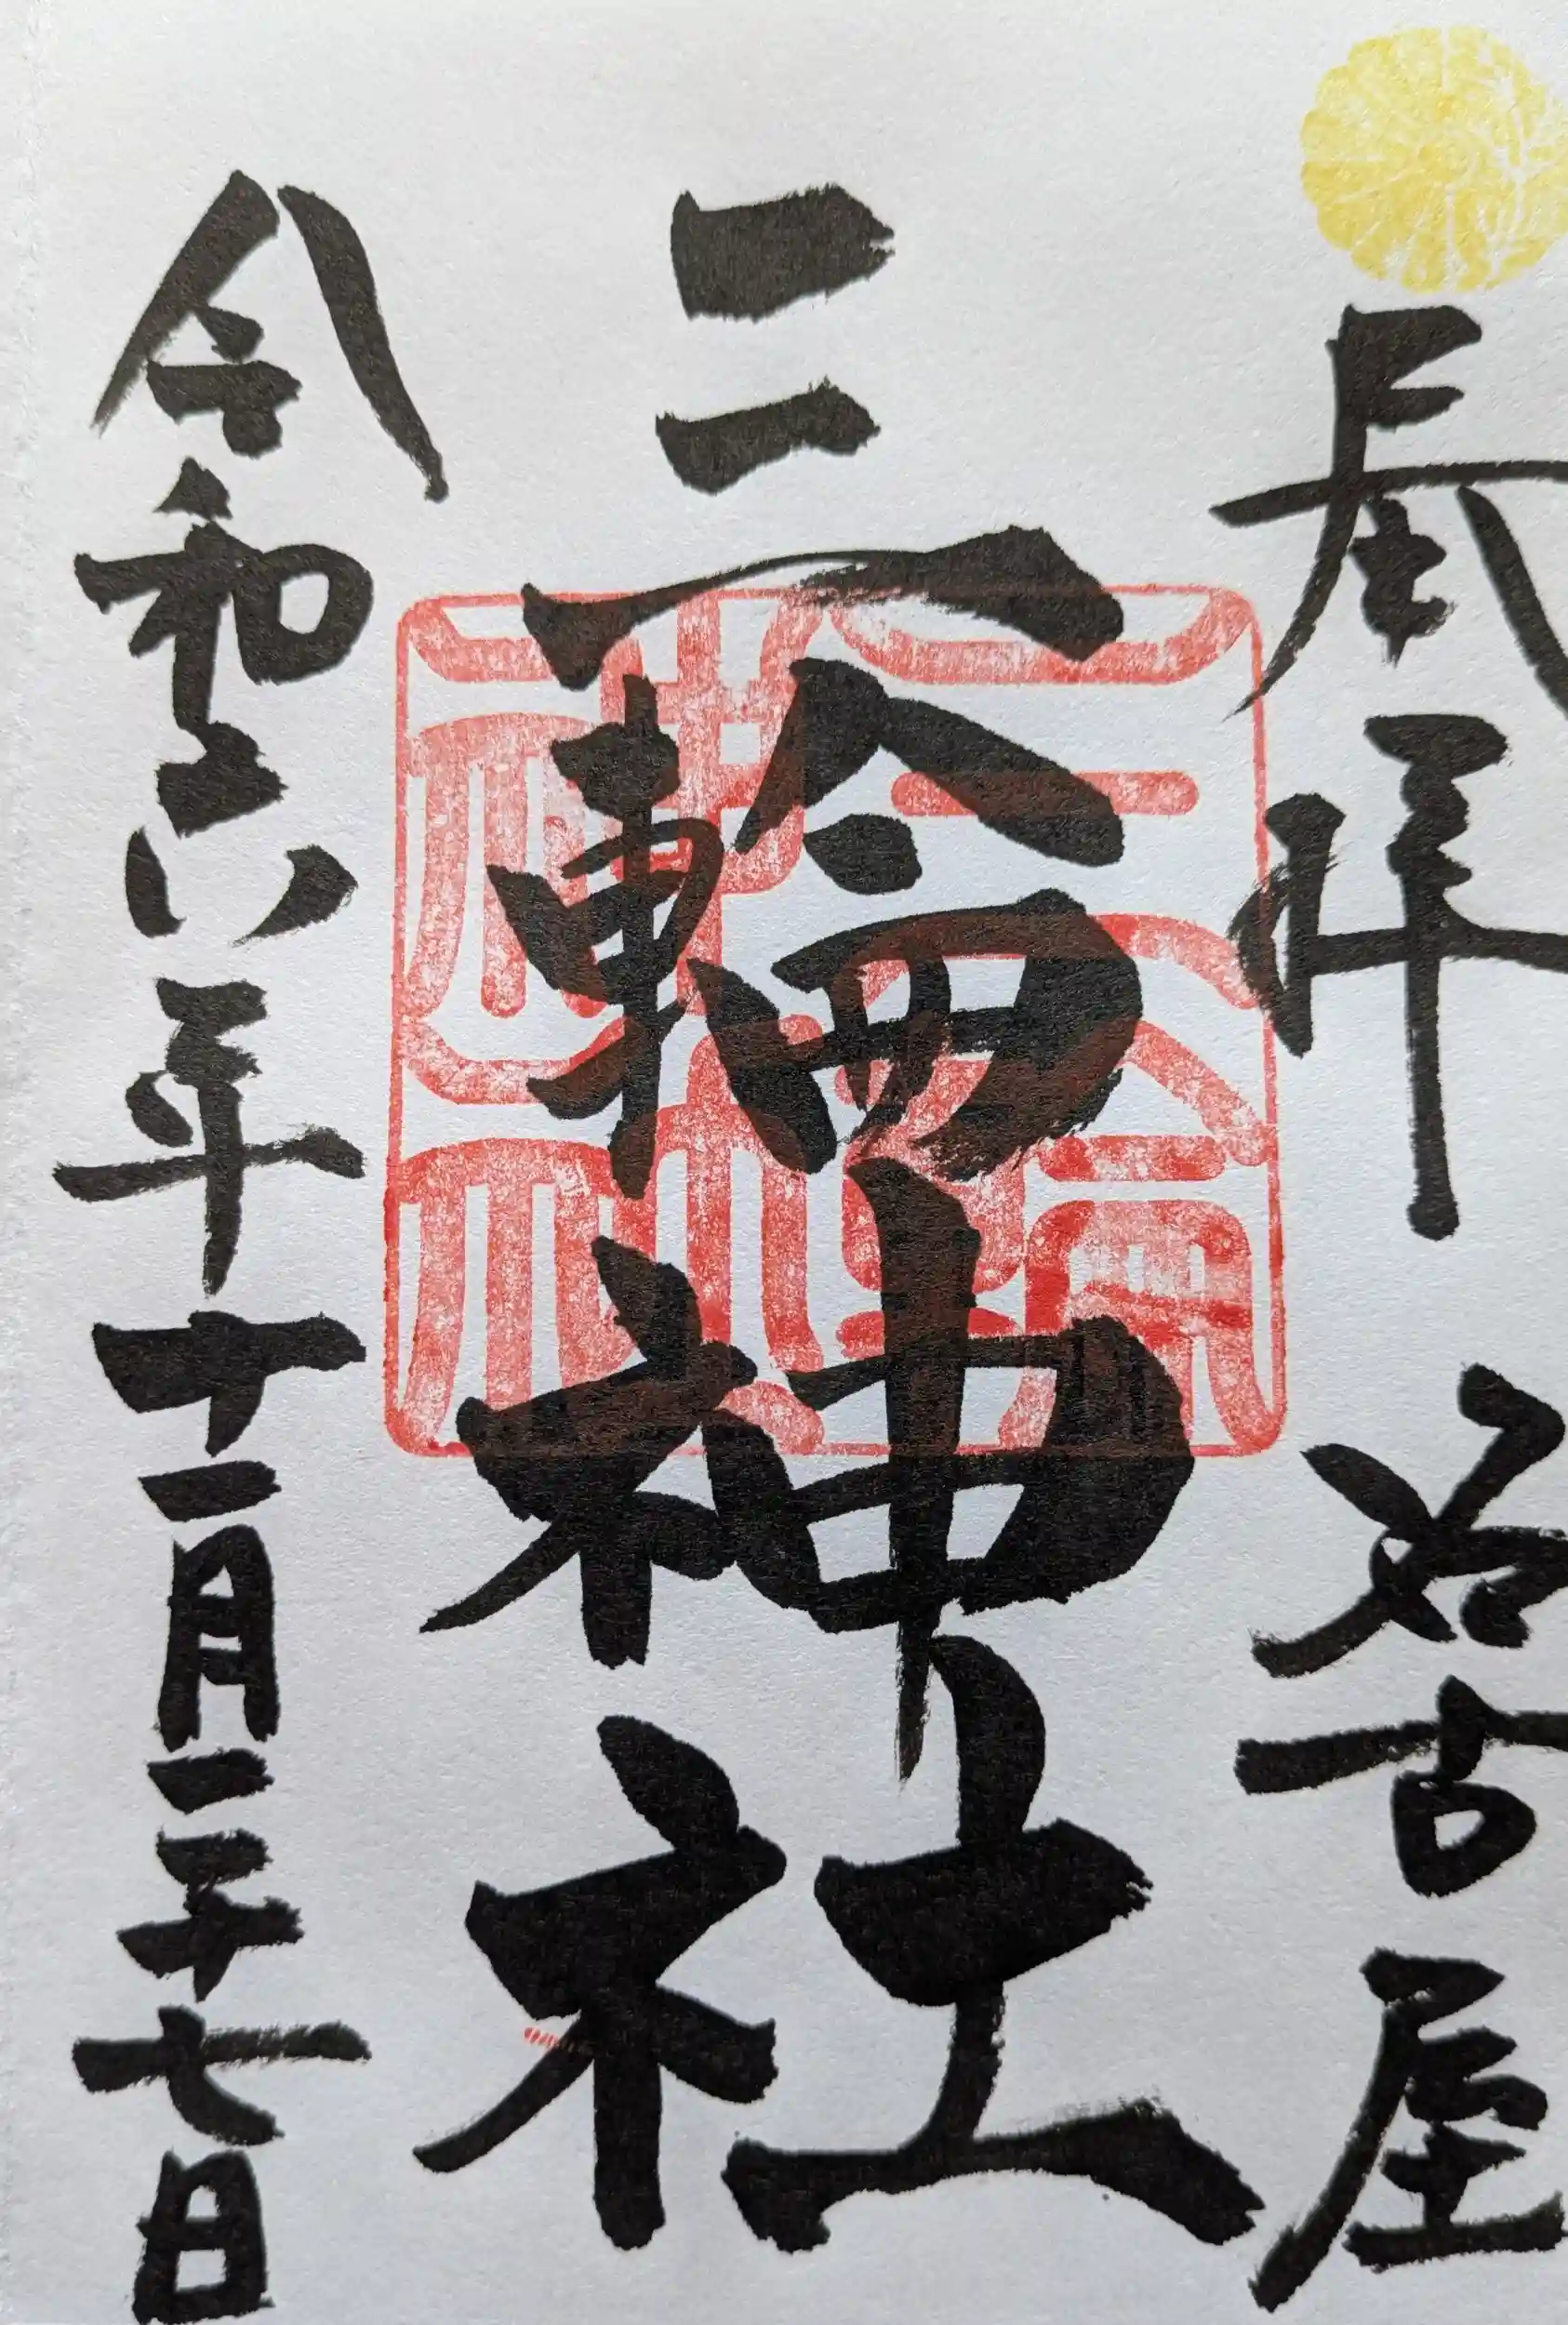 奉拝 名古屋
三輪神社
三輪
神社
令和六年十一月二十七日